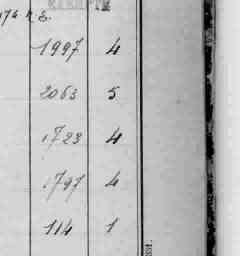 1997 4
2063 5
1723 4
1797 4
114 1